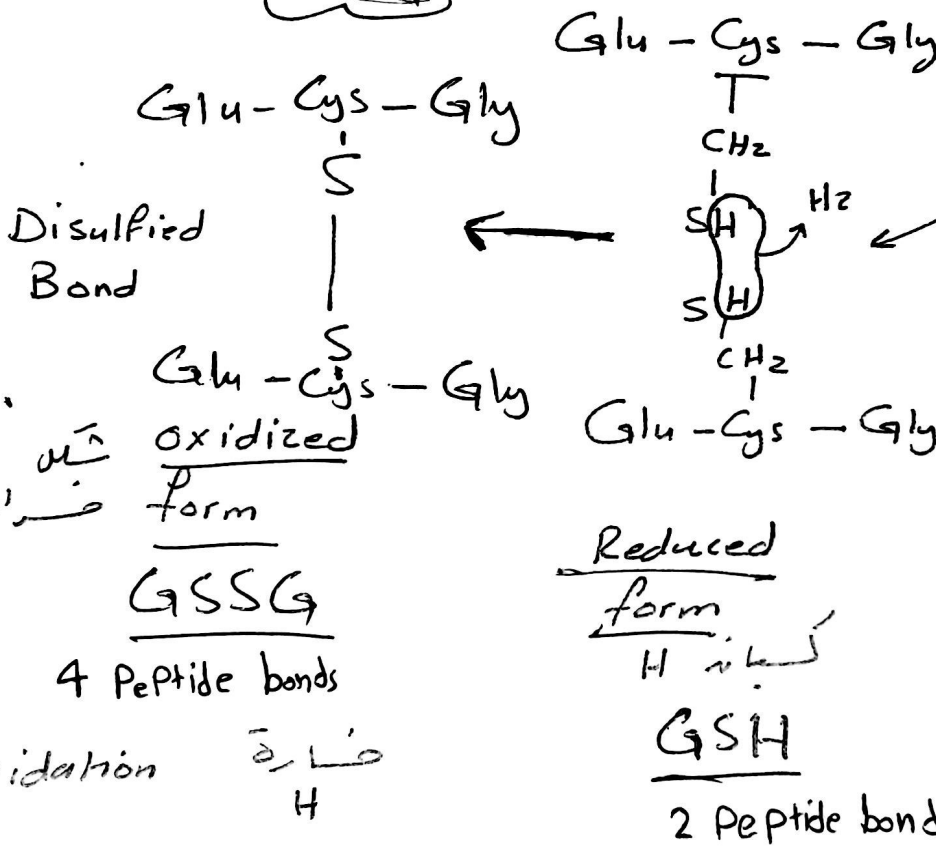 Glu - Cys - Gly
S
S
Glu - Cys - Gly
Disulfied
Bond
oxidized
form
GSSG
4 Peptide bonds
idation خسارة
H
Glu - Cys - Gly
CH2
SH
H2
SH
CH2
Glu - Cys - Gly
Reduced
form
كسبانه H
GSH
2 Peptide bond